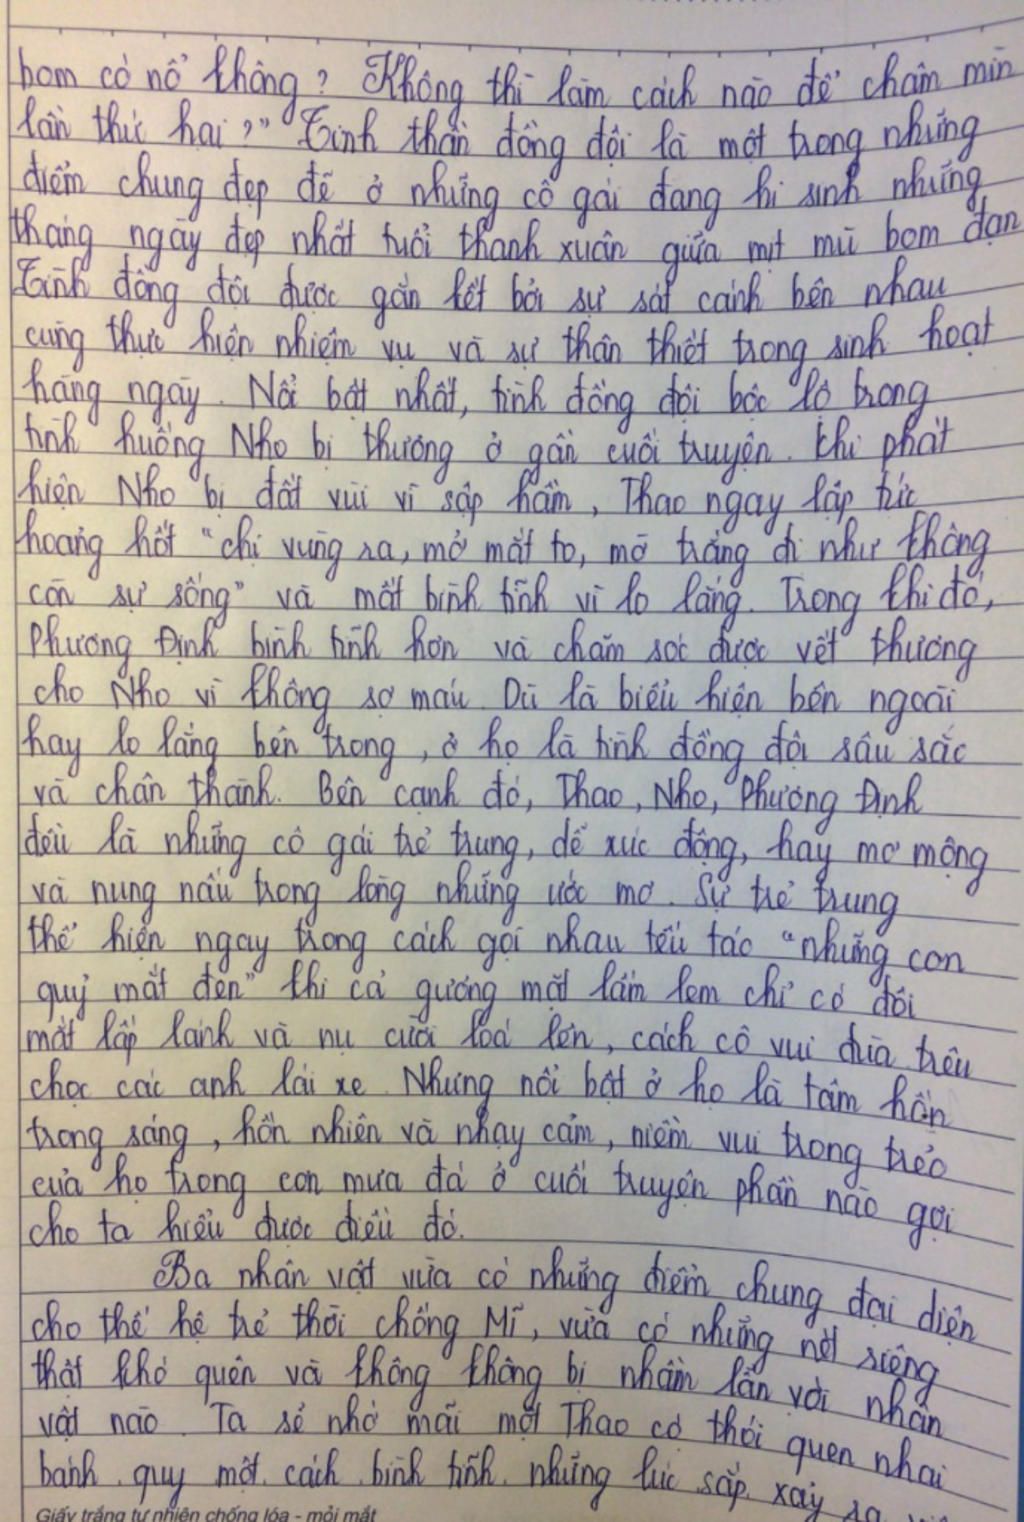 bom có nổ không? Không thì làm cách nào để châm mìn
lần thứ hai?" Tinh thần đồng đội là một trong những
điểm chung đẹp đẽ ở những cô gái đang hi sinh những
tháng ngày đẹp nhất tuổi thanh xuân giữa mịt mù bom đạn
Tình đồng đội được gắn kết bởi sự sát cánh bên nhau
cùng thực hiện nhiệm vụ và sự thân thiết trong sinh hoạt
hằng ngày. Nổi bật nhất, tình đồng đội bộc lộ trong
tình huống Nho bị thương ở gần cuối truyện. Khi phát
hiện Nho bị đất vùi vì sập hầm, Thao ngay lập tức
hoảng hốt "chị vùng ra, mở mắt to, mờ trắng đi như không
còn sự sống" và mất bình tĩnh vì lo lắng. Trong khi đó,
Phương Định bình tĩnh hơn và chăm sóc được vết thương
cho Nho vì không sợ máu. Dù là biểu hiện bên ngoài
hay lo lắng bên trong, ở họ là tình đồng đội sâu sắc
và chân thành. Bên cạnh đó, Thao, Nho, Phương Định
đều là những cô gái trẻ trung, dễ xúc động, hay mơ mộng
và nung nấu trong lòng những ước mơ. Sự trẻ trung
thể hiện ngay trong cách gọi nhau tếu táo "những con
quỷ mắt đen" khi cả gương mặt lấm lem chỉ có đôi
mắt lấp lánh và nụ cười loá lên, cách cô vui đùa trêu
chọc các anh lái xe. Nhưng nổi bật ở họ là tâm hồn
trong sáng, hồn nhiên và nhạy cảm, niềm vui trong trẻo
của họ trong cơn mưa đá ở cuối truyện phần nào gợi
cho ta hiểu được điều đó.
Ba nhân vật vừa có những điểm chung đại diện
cho thế hệ trẻ thời chống Mĩ, vừa có những nét riêng
thật khó quên và không không bị nhầm lẫn với nhân
vật nào. Ta sẽ nhớ mãi một Thao có thói quen nhai
bánh quy một cách bình tĩnh những lúc sắp xảy ra
Giấy trắng tự nhiên chống lóa - mỏi mắt